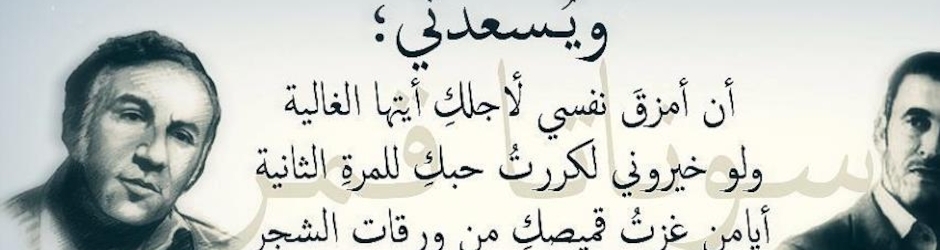 ويُسعدني؛
أن أمزقَ نفسي لأجلكِ أيتها الغالية
ولو خيروني لكررتُ حبكِ للمرةِ الثانية
أيامن غزتُ قميصكِ من ورقات الشجر
سوناتا قمر